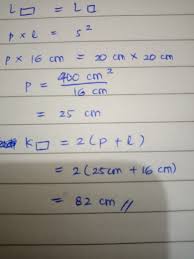 L▭ = L□
p x l = s²
p x 16 cm = 20 cm x 20 cm
p = 400 cm² / 16 cm
= 25 cm
K▭ = 2 (p + l)
= 2 (25 cm + 16 cm)
= 82 cm //